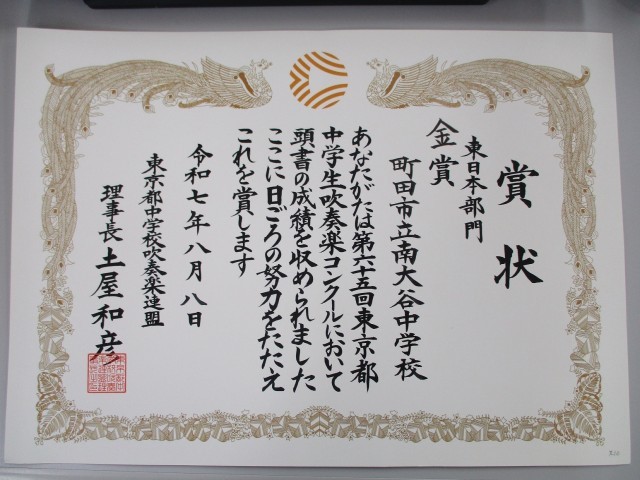 賞状
東日本部門
金賞
町田市立南大谷中学校
あなたがたは第六十五回東京都
中学生吹奏楽コンクールにおいて
頭書の成績を収められました
ここに日ごろの努力をたたえ
これを賞します
令和七年八月八日
東京都中学校吹奏楽連盟
理事長 土屋和彦